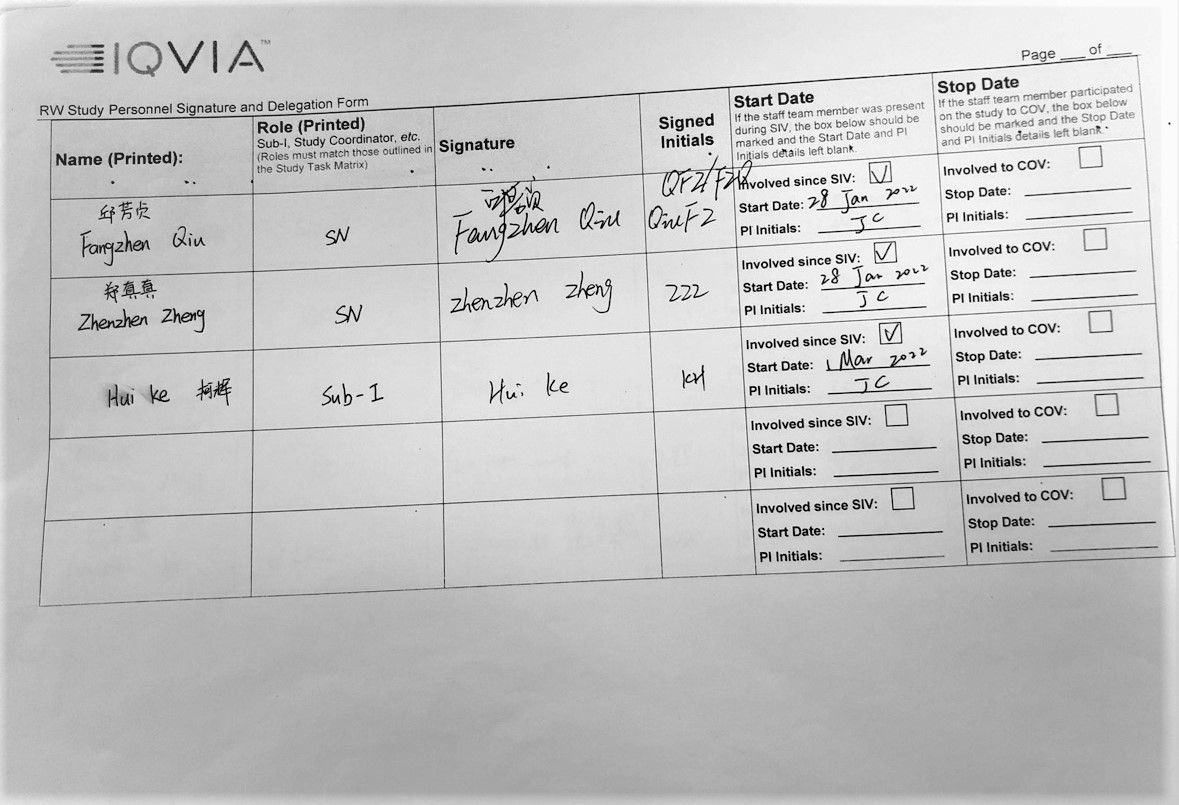 IQVIA™
Page ___ of ___
RW Study Personnel Signature and Delegation Form
Name (Printed):
Role (Printed)
Sub-I, Study Coordinator, etc.
(Roles must match those outlined in
the Study Task Matrix)
Signature
Signed
Initials
Start Date
If the staff team member was present
during SIV, the box below should be
marked and the Start Date and PI
Initials details left blank.
Stop Date
If the staff team member participated
on the study to COV, the box below
should be marked and the Stop Date
and PI Initials details left blank.
邱芳贞
Fangzhen Qiu
SN
Fangzhen Qiu
QFZ/FZQ
QiuFZ
Involved since SIV: ☑
Start Date: 28 Jan 2022
PI Initials: JC
Involved to COV: ☐
Stop Date:
PI Initials:
郑真真
Zhenzhen Zheng
SN
Zhenzhen Zheng
ZZZ
Involved since SIV: ☑
Start Date: 28 Jan 2022
PI Initials: JC
Involved to COV: ☐
Stop Date:
PI Initials:
Hui Ke 柯辉
Sub-I
Hui Ke
KH
Involved since SIV: ☑
Start Date: 1 Mar 2022
PI Initials: JC
Involved to COV: ☐
Stop Date:
PI Initials:
Involved since SIV: ☐
Start Date:
PI Initials:
Involved to COV: ☐
Stop Date:
PI Initials:
Involved since SIV: ☐
Start Date:
PI Initials:
Involved to COV: ☐
Stop Date:
PI Initials: